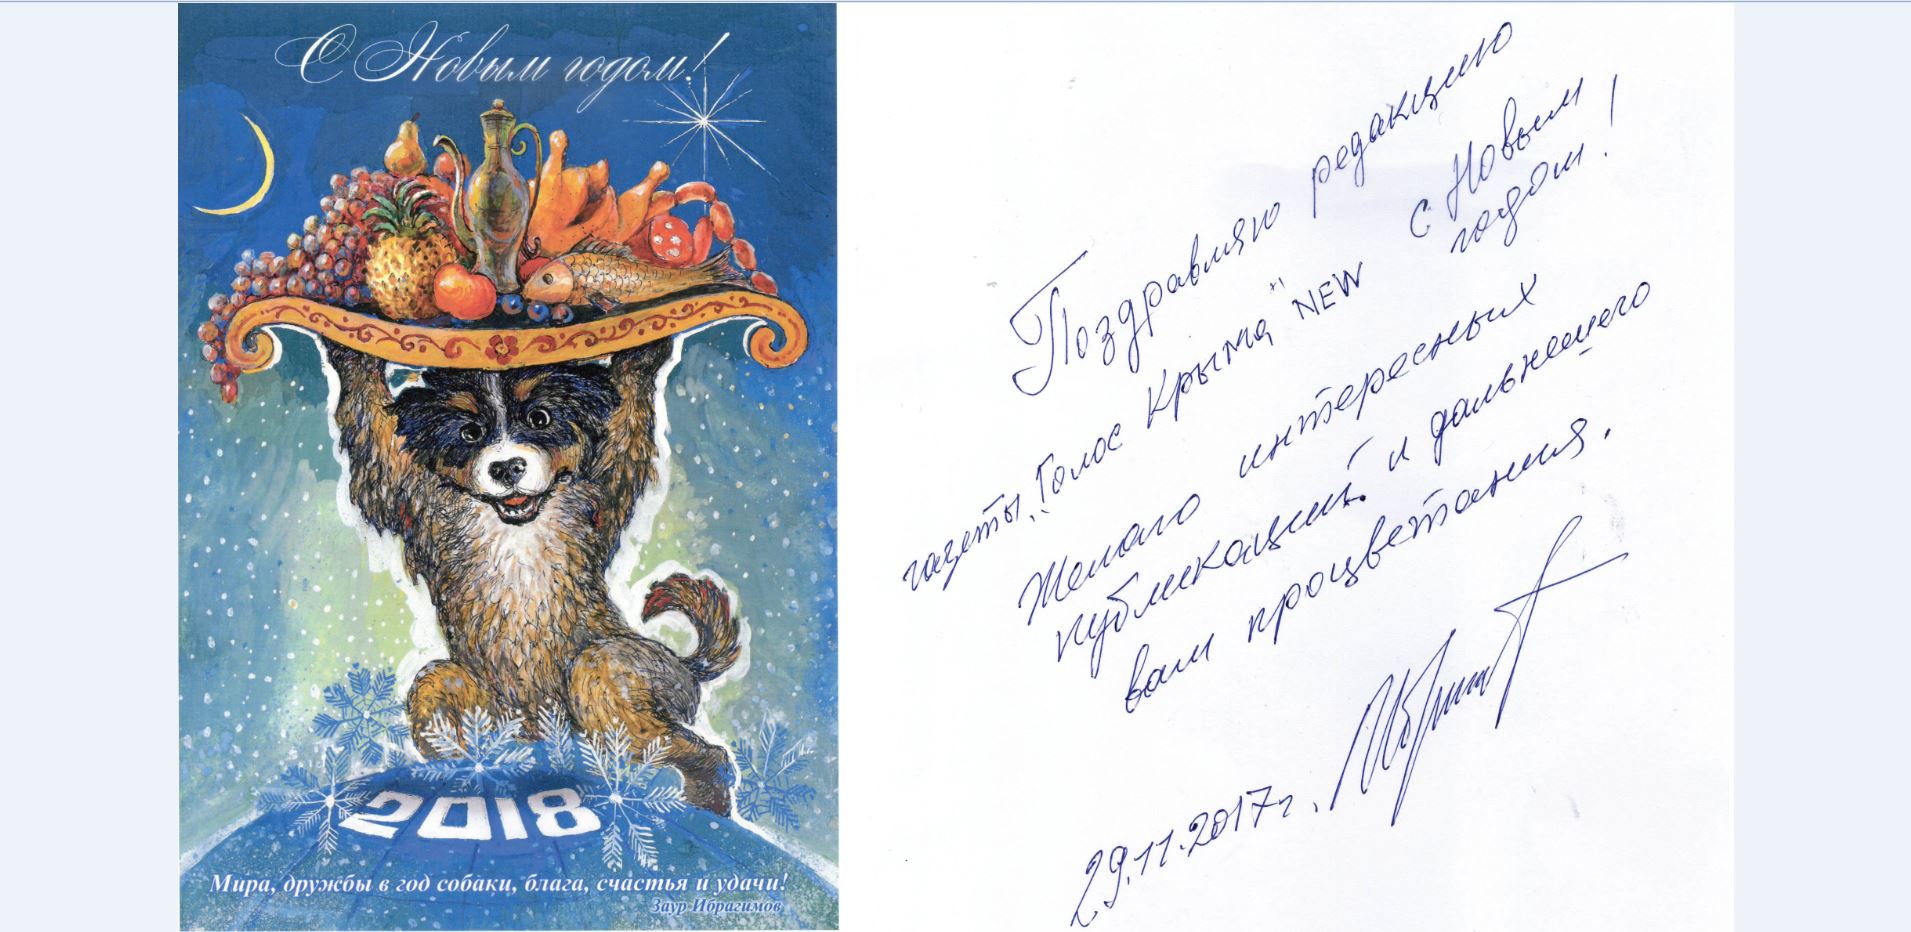 С Новым годом!
2018
Мира, дружбы в год собаки, блага, счастья и удачи!
Заур Ибрагимов
Поздравляю редакцию
газеты „Голос Крыма" NEW
с Новым
годом!
Желаю интересных
публикаций и дальнейшего
вам процветания.
29.11.2017г.